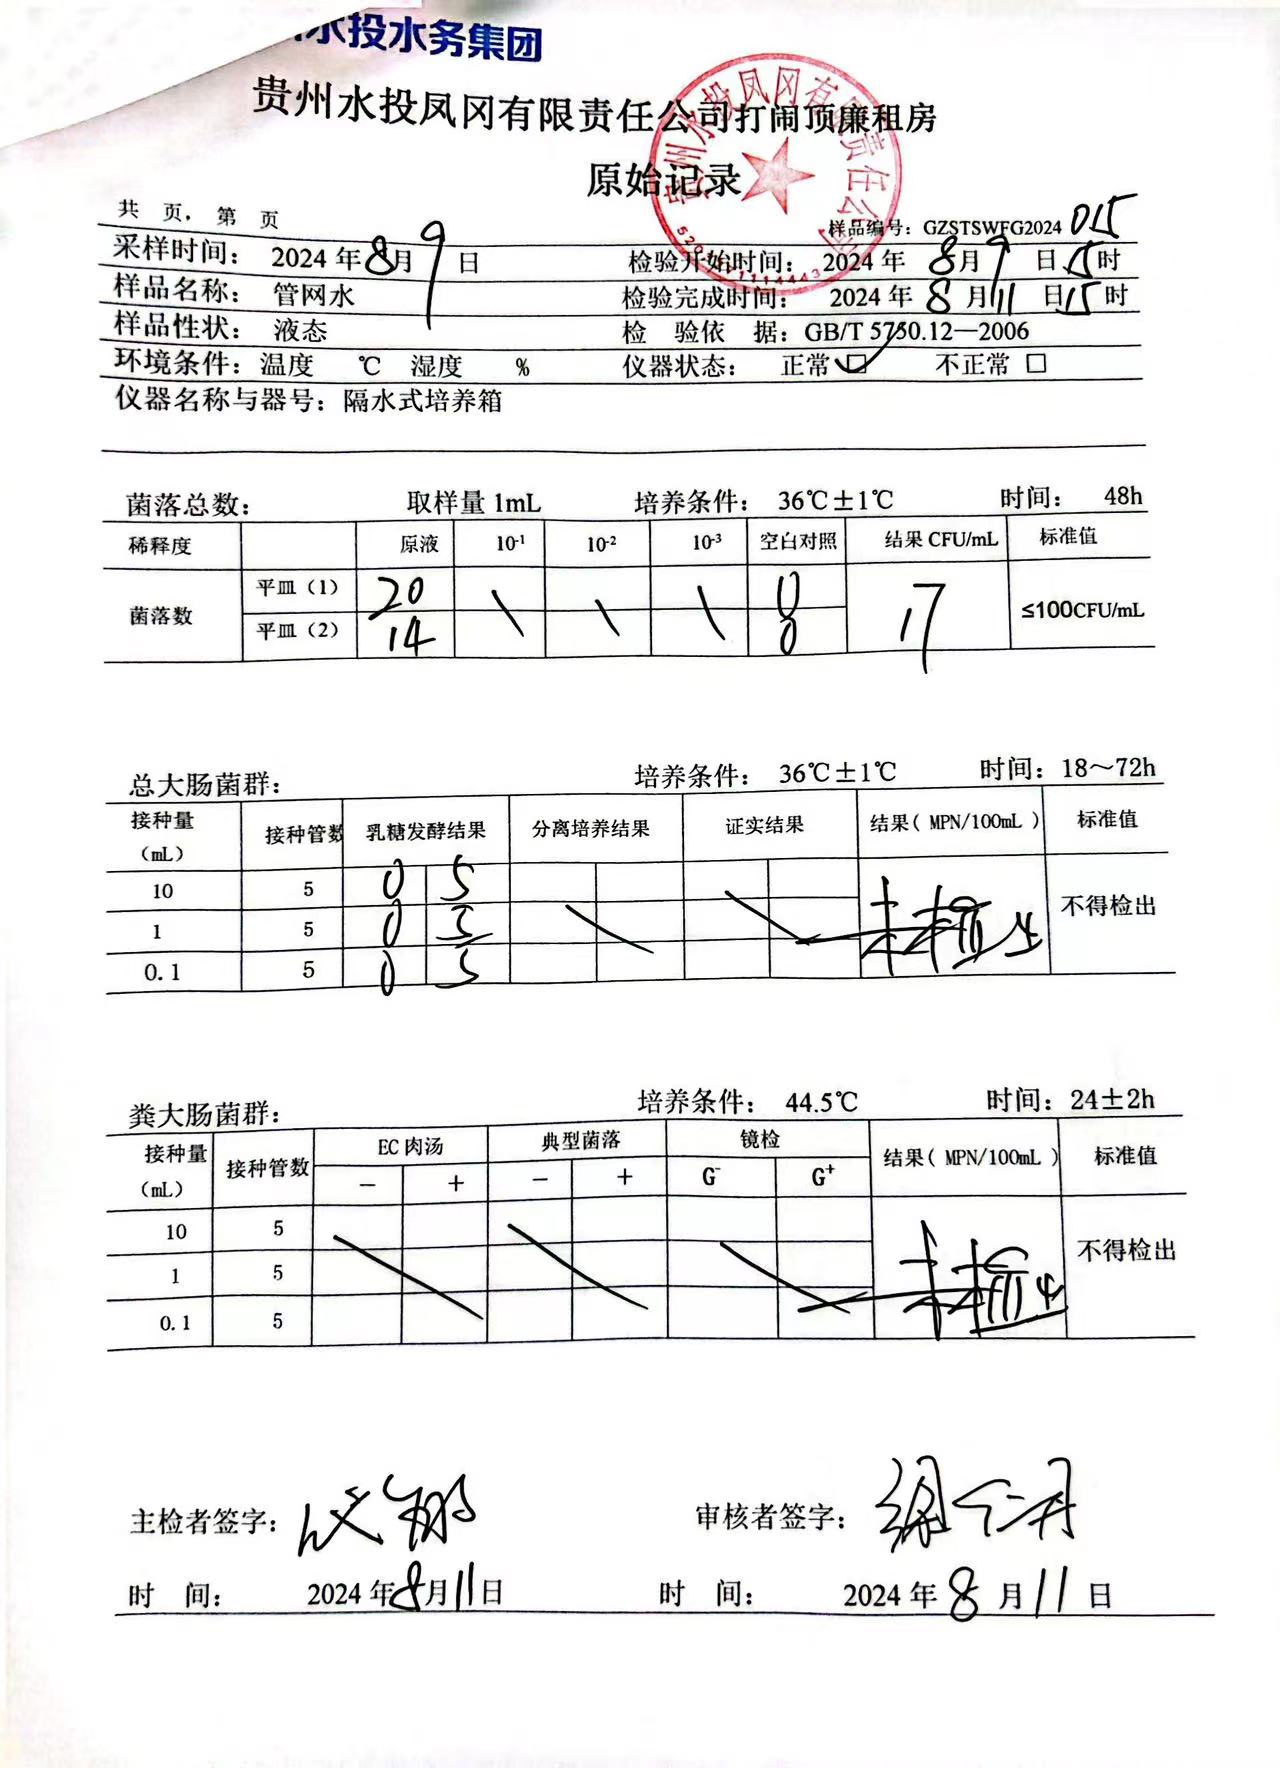 水投水务集团
贵州水投凤冈有限责任公司打闹顶廉租房
原始记录
共 页，第 页
样品编号：GZSTSWFG2024 015
采样时间： 2024年8月9日 检验开始时间： 2024年8月9日15时
样品名称： 管网水 检验完成时间： 2024年8月11日15时
样品性状： 液态 检 验依 据：GB/T 5750.12—2006
环境条件：温度 ℃ 湿度 % 仪器状态： 正常☑ 不正常□
仪器名称与器号：隔水式培养箱
菌落总数： 取样量 1mL 培养条件： 36℃±1℃ 时间： 48h
稀释度 原液 10⁻¹ 10⁻² 10⁻³ 空白对照 结果 CFU/mL 标准值
菌落数 平皿（1） 20 \ \ \ 0 17 ≤100CFU/mL
平皿（2） 14 0
总大肠菌群： 培养条件： 36℃±1℃ 时间：18～72h
接种量（mL） 接种管数 乳糖发酵结果 分离培养结果 证实结果 结果（MPN/100mL） 标准值
10 5 0 5 未检出 不得检出
1 5 0 5
0.1 5 0 5
粪大肠菌群： 培养条件： 44.5℃ 时间：24±2h
接种量（mL） 接种管数 EC肉汤 典型菌落 镜检 结果（MPN/100mL） 标准值
— + — + G⁻ G⁺
10 5 未检出 不得检出
1 5
0.1 5
主检者签字： 审核者签字：
时 间： 2024年8月11日 时 间： 2024年8月11日